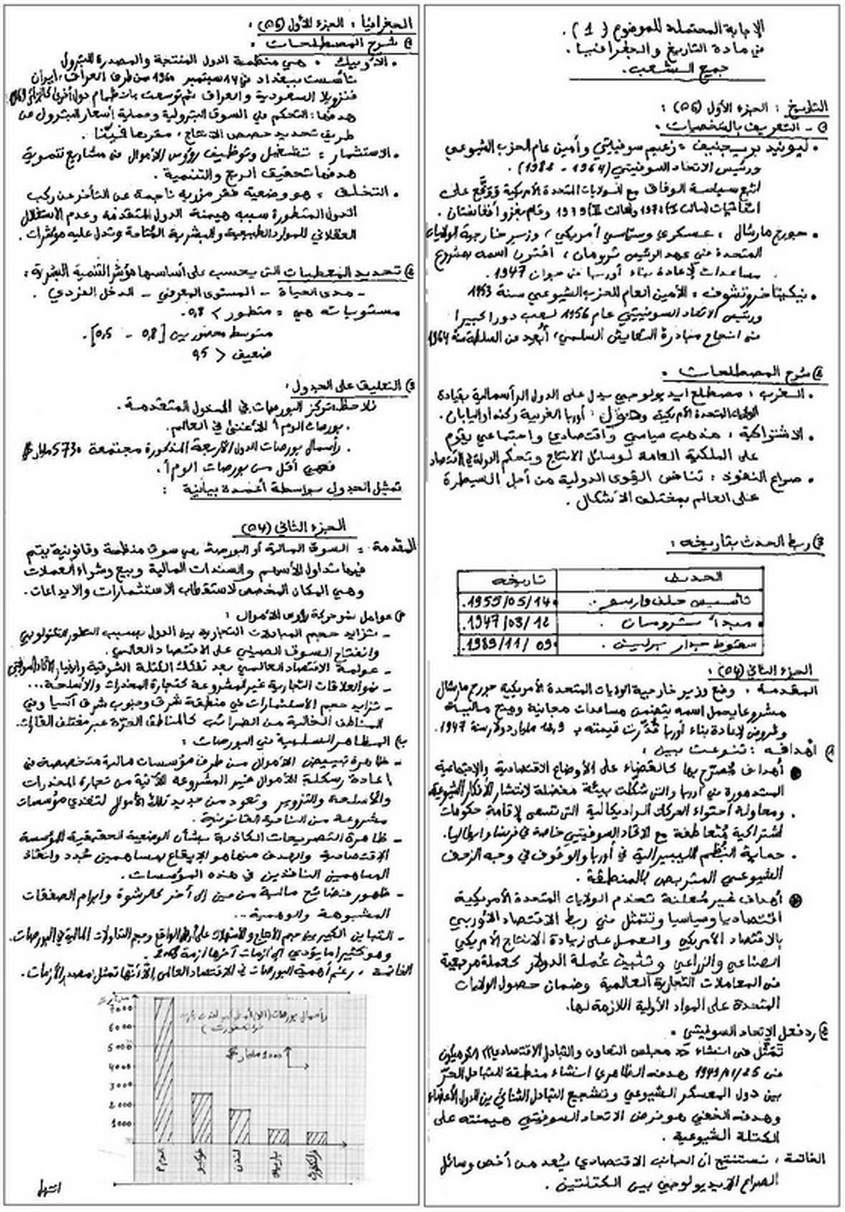 الإجابة المحتملة للموضوع ( 1 ) .
في مادة التاريخ والجغرافيا .
جميع الشعب .
التاريخ : الجزء الأول (06) :
① - التعريف بالشخصيات :
• ليونيد بريجنيف : زعيم سوفياتي وأمين عام الحزب الشيوعي
ورئيس الاتحاد السوفيتي (1964 -
اتبع سياسة الوفاق مع الولايات المتحدة الأمريكية ووقع على
وقام بغزو أفغانستان .
• جورج مارشال : عسكري وسياسي أمريكي ، وزير خارجية الولايات
المتحدة في عهد الرئيس ترومان ، اقترن اسمه بمشروع
مساعدات لإعادة بناء أوربا في جوان 1947 .
• نيكيتا خروتشوف : الأمين العام للحزب الشيوعي سنة 1953
ورئيس الاتحاد السوفييتي عام 1956 لعب دورا كبيرا
في انجاح مبادرة التعايش السلمي ، أبعد عن السلطة سنة 1964
② شرح المصطلحات .
• الغرب : مصطلح ايديولوجي يدل على الدول الرأسمالية بقيادة
الولايات المتحدة الأمريكية أوربا الغربية وكندا واليابان .
• الاشتراكية : مذهب سياسي واقتصادي واجتماعي يقوم
على الملكية العامة لوسائل الانتاج وتحكم الدولة في الاقتصاد
• صراع النفوذ : تنافس القوى الدولية من أجل السيطرة
على العالم بمختلف الأشكال .
③ ربط الحدث بتاريخه :
الحدث تاريخه
تأسيس حلف وارسو . 1955/05/14.
مبدأ ترومان . 1947/03/12.
سقوط جدار برلين . 1989/11/09.
الجزء الثاني (04) :
المقدمة : وضع وزير خارجية الولايات المتحدة الأمريكية جورج مارشال
مشروعا يحمل اسمه يتضمن مساعدات مجانية ومنح مالية
وقروض لإعادة بناء أوربا قدرت قيمته بـ مليار دولار سنة 1947.
① أهدافه : تنوعت بين :
● أهداف مصرح بها كالقضاء على الأوضاع الاقتصادية والاجتماعية
المتدهورة في أوربا والتي شكلت بيئة مفضلة لانتشار الأفكار الشيوعية
. ومحاولة احتواء الحركات الراديكالية التي تسعى لإقامة حكومات
اشتراكية متعاطفة مع الاتحاد السوفيتي خاصة في فرنسا وايطاليا.
. حماية النظم الليبيرالية في أوربا والوقوف في وجه الزحف
الشيوعي المتربص بالمنطقة .
● أهداف غير معلنة تخدم الولايات المتحدة الأمريكية
اقتصاديا وسياسيا وتتمثل في ربط الاقتصاد الأوربي
بالاقتصاد الأمريكي والعمل على زيادة الانتاج الأمريكي
الصناعي والزراعي وتثبيت عملة الدولار كعملة مرجعية
في المعاملات التجارية العالمية وضمان حصول الولايات
المتحدة على المواد الأولية اللازمة لها.
② رد فعل الإتحاد السوفيتي .
تمثل في انشاء مجلس التعاون والتبادل الاقتصادي الكوميكون
في 1949/01/25 وهدفه الظاهري انشاء منطقة للتبادل الحر
بين دول المعسكر الشيوعي وتشجيع التبادل الثنائي بين الدول الأعضاء
وهدفه الخفي هو فرض الاتحاد السوفيتي هيمنته على
الكتلة الشيوعية .
الخاتمة : نستنتج أن الجانب الاقتصادي يعد من أخص وسائل
الصراع الايديولوجي بين الكتلتين .
الجغرافيا : الجزء الأول (06) :
① شرح المصطلحات :
• الأوبيك : هي منظمة الدول المنتجة والمصدرة للبترول
تأسست ببغداد في 14 سبتمبر 1960 من طرف العراق ، ايران
فنزويلا السعودية والعراق ، ثم توسعت
هدفها : التحكم في السوق البترولية وحماية أسعار البترول عن
طريق تحديد حصص الانتاج ، مقرها فيينا .
• الاستثمار : تشغيل وتوظيف رؤوس الأموال في مشاريع تنموية
هدفها تحقيق الربح والتنمية .
• التخلف : هو وضعية فقر مزرية ناجمة عن التأخر عن ركب
الدول المتطورة سببه هيمنة الدول المتقدمة وعدم الاستغلال
العقلاني للموارد الطبيعية والبشرية المتاحة وتدل عليه مؤشرات .
② تحديد المعطيات التي يحسب على أساسها مؤشر التنمية البشرية :
- مدى الحياة - المستوى المعرفي - الدخل الفردي .
مستوياته هي : متطور > 0,8.
متوسط محصور بين [0,8 - 0,5].
ضعيف <
③ التعليق على الجدول :
نلاحظ تركز البورصات في الدول المتقدمة .
. بورصات الو م أ الأغنى في العالم .
. رأسمال بورصات الدول الأربعة المذكورة مجتمعة 5730 مليار $
فهي أقل من بورصات الو م أ .
تمثيل الجدول بواسطة أعمدة بيانية :
الجزء الثاني (04)
المقدمة : السوق المالية أو البورصة هي سوق منظمة وقانونية يتم
فيها تداول الأسهم والسندات المالية وبيع وشراء العملات
وهي المكان المخصص لاستقطاب الاستثمارات والايداعات .
أ) عوامل نمو حركة رؤوس الأموال :
- تزايد حجم المبادلات التجارية بين الدول بسبب التطور التكنولوجي
وانفتاح السوق الصيني على الاقتصاد العالمي.
- عولمة الاقتصاد العالمي بعد تفكك الكتلة الشرقية وانهيار
- نمو العلاقات التجارية غير المشروعة كتجارة المخدرات والأسلحة...
- تزايد حجم الاستثمارات في منطقة شرق وجنوب شرق آسيا وفي
المناطق الخالية من الضرائب كالمناطق الحرة عبر مختلف القارات .
ب) المظاهر السلبية في البورصات :
- ظاهرة تبييض الأموال من طرف مؤسسات مالية متخصصة في
إعادة رسكلة الأموال غير المشروعة الآتية من تجارة المخدرات
والأسلحة والتزوير وتعود من جديد تلك الأموال لتغذي مؤسسات
مشروعة من الناحية القانونية .
- ظاهرة التصريحات الكاذبة بشأن الوضعية الحقيقية للمؤسسة
الاقتصادية والهدف منها هو الإيقاع بمساهمين جدد وانقاذ
المساهمين النافذين في هذه المؤسسات .
- ظهور فضائح مالية من حين إلى آخر كالرشوة وابرام الصفقات
المشبوهة والوهمية ...
- التباين الكبير بين حجم الانتاج والاستهلاك على أرض الواقع وحجم التداولات المالية في البورصات .
وهو كثيرا ما يؤدي إلى أزمات آخرها أزمة 2008 .
الخاتمة : رغم أهمية البورصات في الاقتصاد العالمي إلا أنها تمثل مصدر الأزمات .
رأسمال بورصات
1000 مليار $
7000
5000
4000
3000
2000
1000
الو م أ
طوكيو
لندن
باريس
فرانكفورت
انتهى